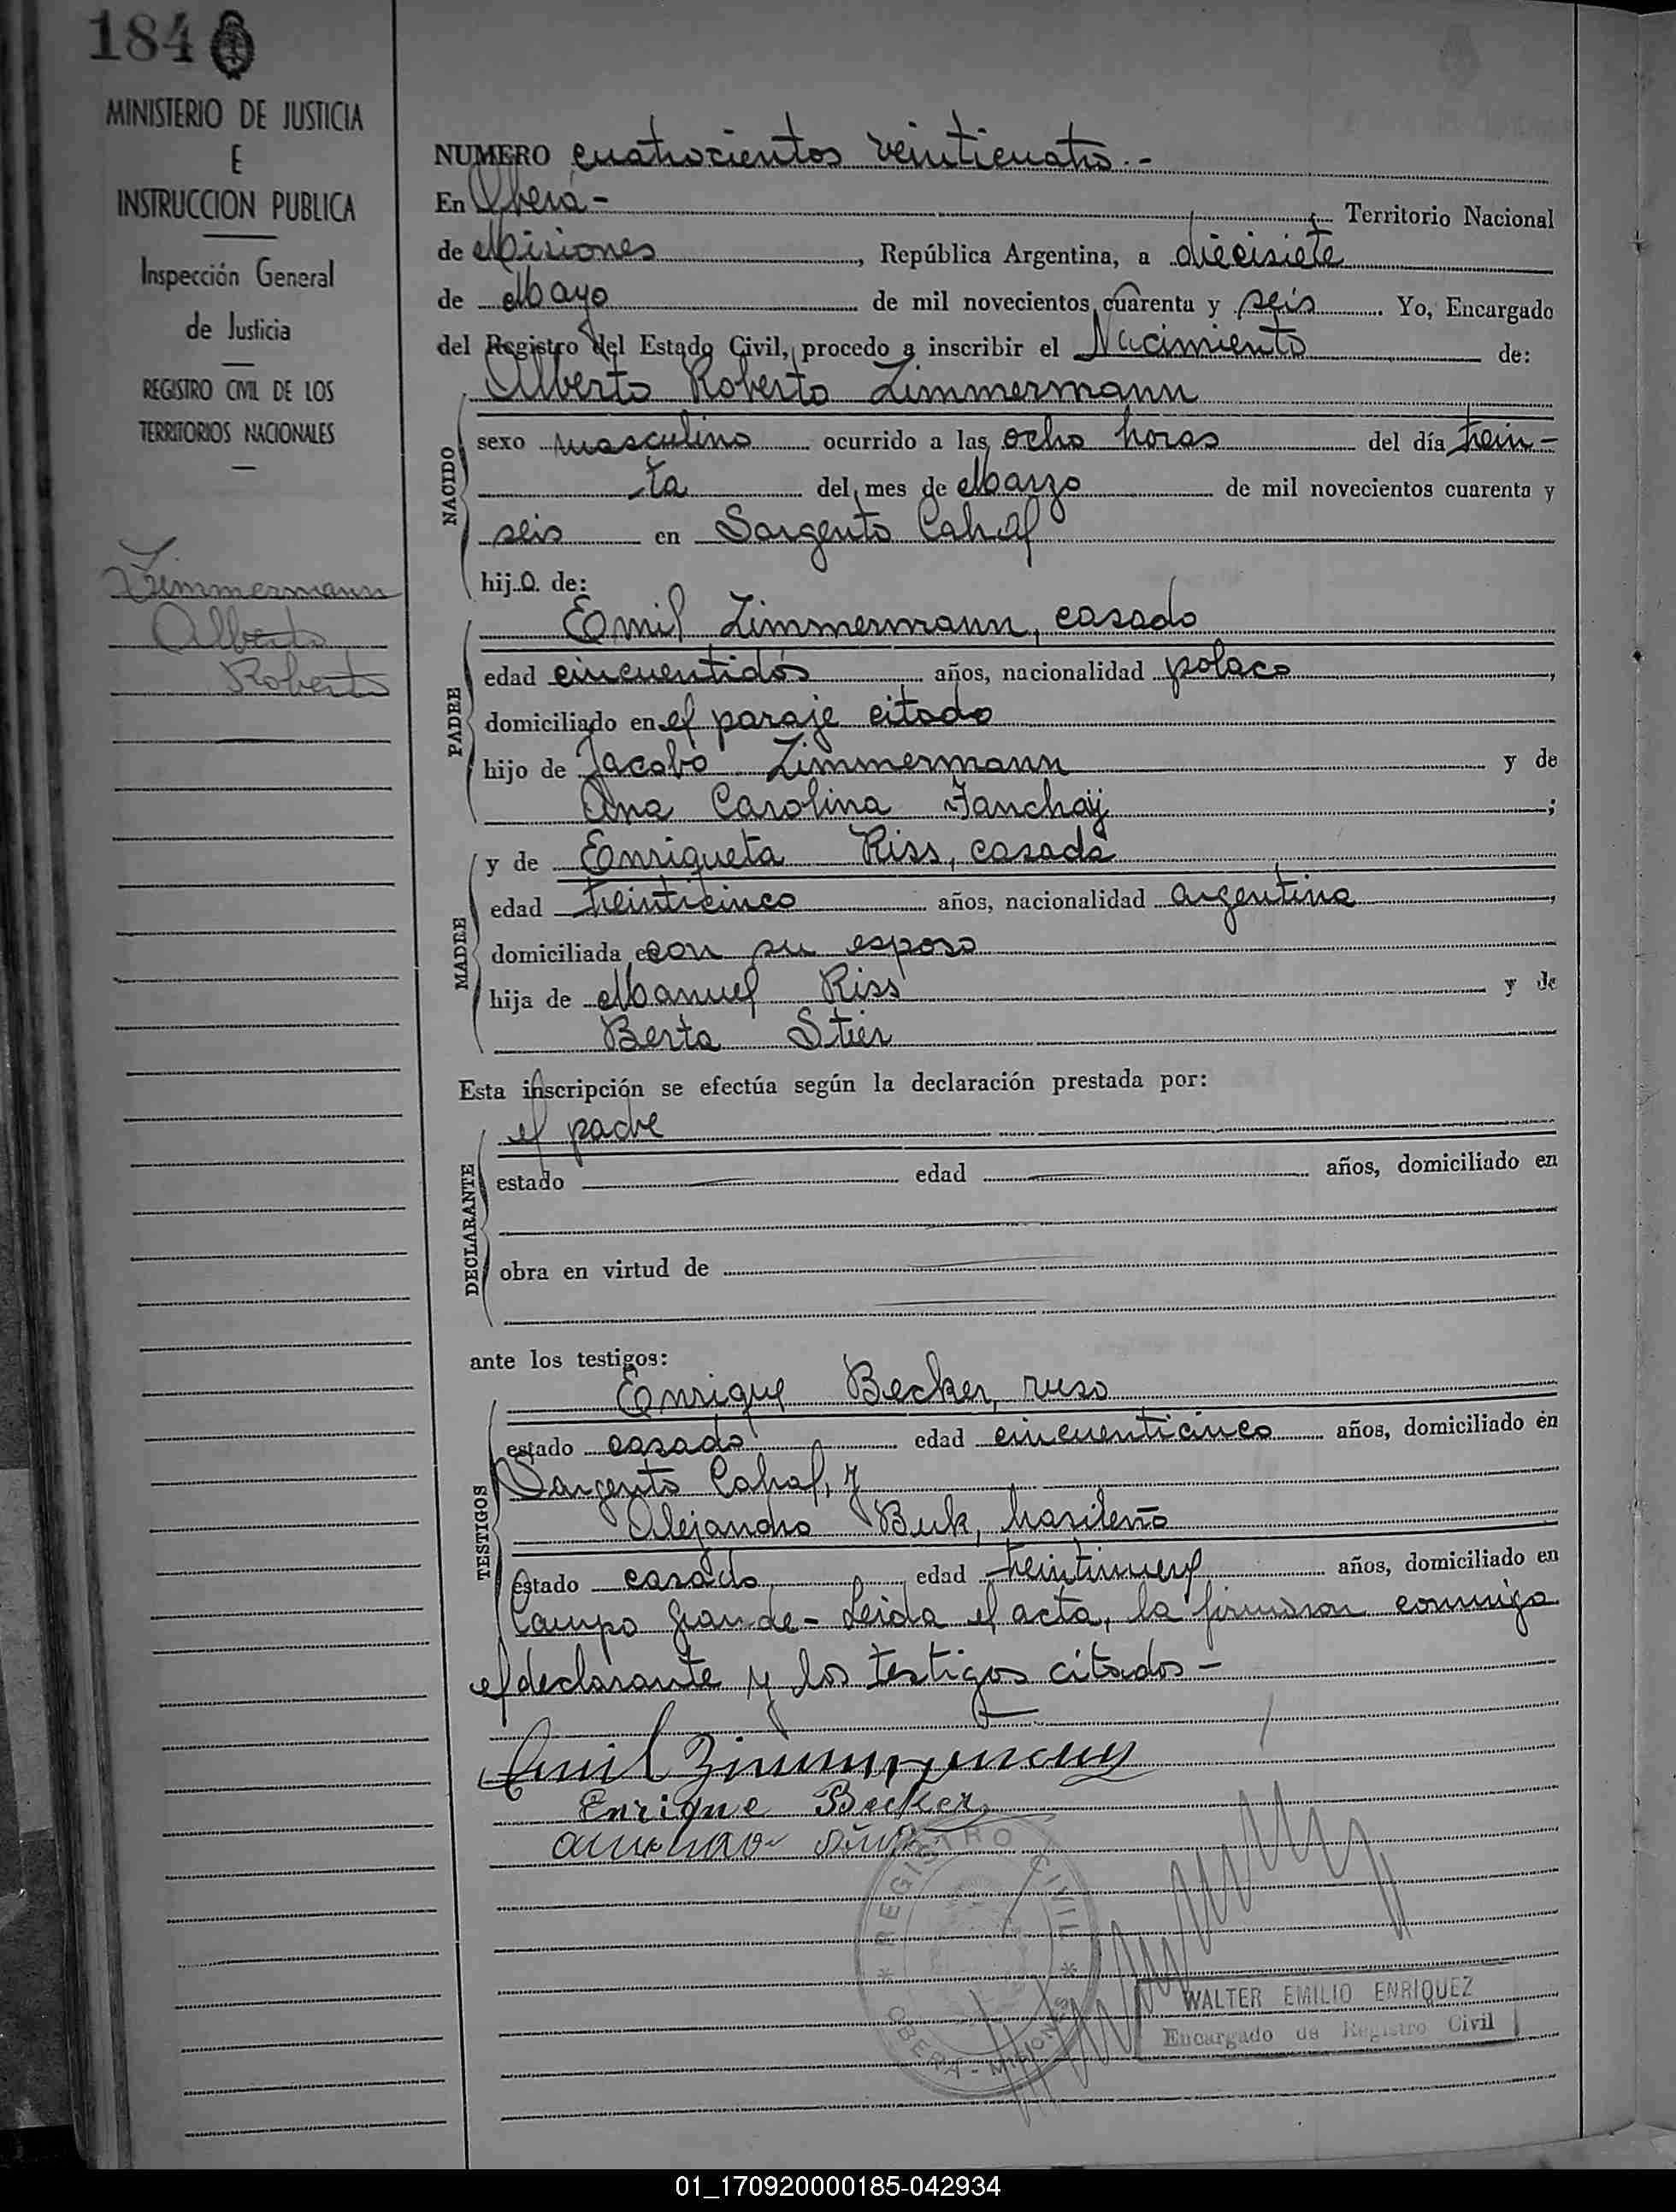 184
MINISTERIO DE JUSTICIA
E
INSTRUCCION PUBLICA
Inspección General
de Justicia
REGISTRO CIVIL DE LOS
TERRITORIOS NACIONALES
Zimmermann
Alberto
Roberto
NUMERO cuatrocientos veinticuatro.-
En Oberá- Territorio Nacional
de Misiones, República Argentina, a diecisiete
de Mayo de mil novecientos cuarenta y seis Yo, Encargado
del Registro del Estado Civil, procedo a inscribir el Nacimiento de:
Alberto Roberto Zimmermann
NACIDO
sexo masculino ocurrido a las ocho horas del día trein-
ta del mes de Marzo de mil novecientos cuarenta y
seis en Sargento Cabral
hijo de:
PADRE
Emil Zimmermann, casado
edad cincuentidós años, nacionalidad polaco,
domiciliado en el paraje citado
hijo de Jacobo Zimmermann y de
Ana Carolina;
MADRE
y de Enriqueta Riss, casada
edad treinticinco años, nacionalidad argentina,
domiciliada con su esposo
hija de Manuel Riss y de
Berta Stier
Esta inscripción se efectúa según la declaración prestada por:
DECLARANTE
el padre
estado edad años, domiciliado en
obra en virtud de
ante los testigos:
TESTIGOS
Enrique Becker, ruso
estado casado edad cincuenticinco años, domiciliado en
Sargento Cabral, y
Alejandro Buk, brasileño
estado casado edad treintinueve años, domiciliado en
Campo Grande- Leida el acta, la firmaron conmigo
el declarante y los testigos citados-
Emil Zimmermann
Enrique Becker
REGISTRO CIVIL
OBERA - MISIONES
WALTER EMILIO ENRIQUEZ
Encargado de Registro Civil
01_170920000185-042934